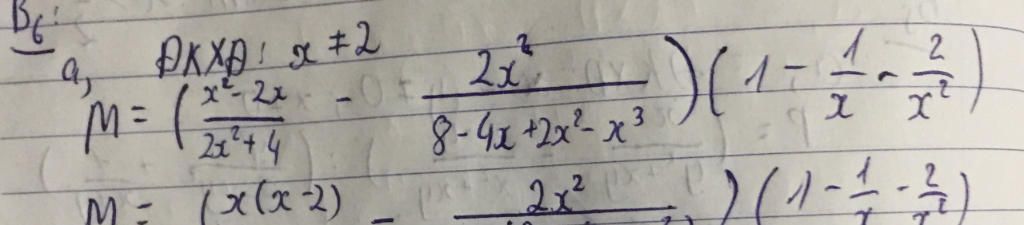 B6:
a, ĐKXĐ: x ≠ 2
M = ( (x² - 2x)/(2x² + 4) - 2x²/(8 - 4x + 2x² - x³) ) ( 1 - 1/x - 2/x² )
M = ( x(x - 2) - 2x² ) ( 1 - 1/x - 2/x² )